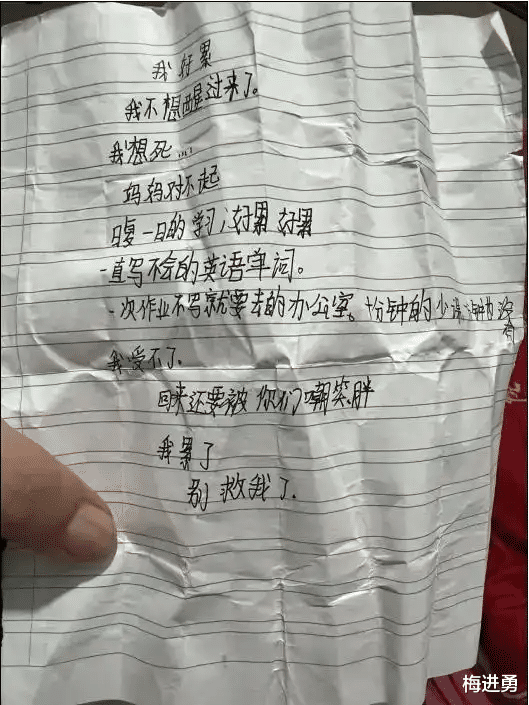 我好累
我不想醒过来了。
我想死...
妈妈对不起
日复一日的学习,好累 好累
一直写不会的英语单词。
一次作业不写就要去的办公室。十分钟的少课
我受不了.
回来还要被你们嘲笑胖
我累了
别救我了.
梅进勇